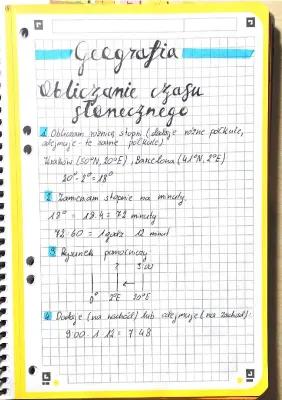 Geografia
Obliczanie czasu
słonecznego
1. Obliczam różnicę stopni (dodaję różne półkule,
odejmuję - te same półkule)
Kraków (50°N, 20°E), Barcelona (41°N, 2°E)
20° - 2° = 18°
2. Zamieniam stopnie na minuty.
18° = 18·4 = 72 minuty
72 - 60 = 1 godz. 12 minut
3. Rysunek pomocniczy:
? 9:00
0° 2°E 20°E
4. Dodaję (na wschód) lub odejmuję (na zachód):
9:00 - 1:12 = 7:48